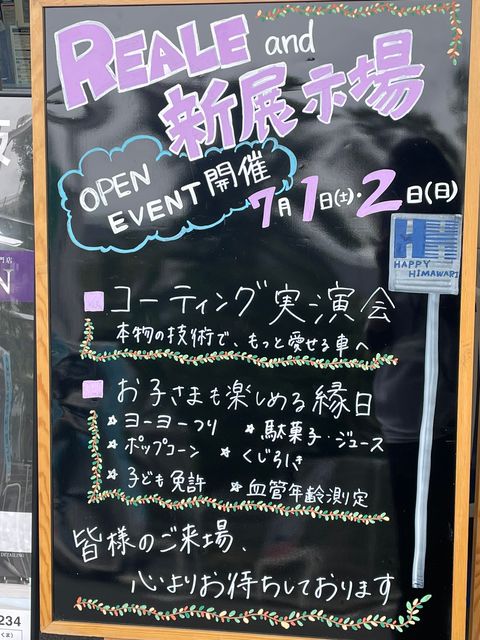 REALE and
新展示場
OPEN
EVENT開催
7月1日(土)・2日(日)
HH
HAPPY
HIMAWARI
■コーティング実演会
本物の技術で、もっと愛せる車へ
■お子さまも楽しめる縁日
☆ヨーヨーつり
☆駄菓子・ジュース
☆ポップコーン
☆くじ引き
☆子ども免許
☆血管年齢測定
皆様のご来場、
心よりお待ちしております
門店
N
DETAILING
234